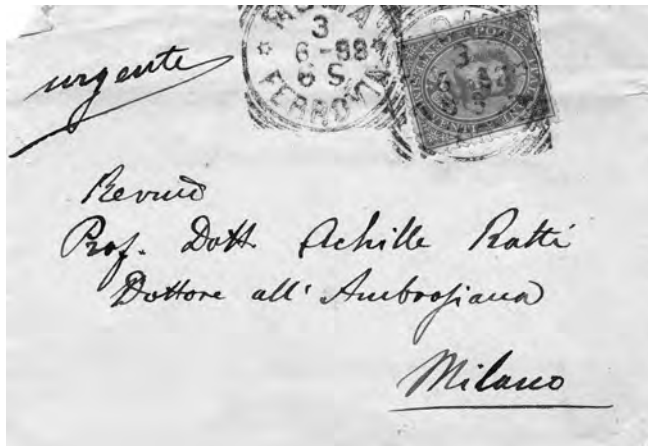 ROMA
3
6-88
6 S.
FERROVIA
urgente
Prof. Dott Achille Ratti
Dottore all' Ambrosiana
Milano